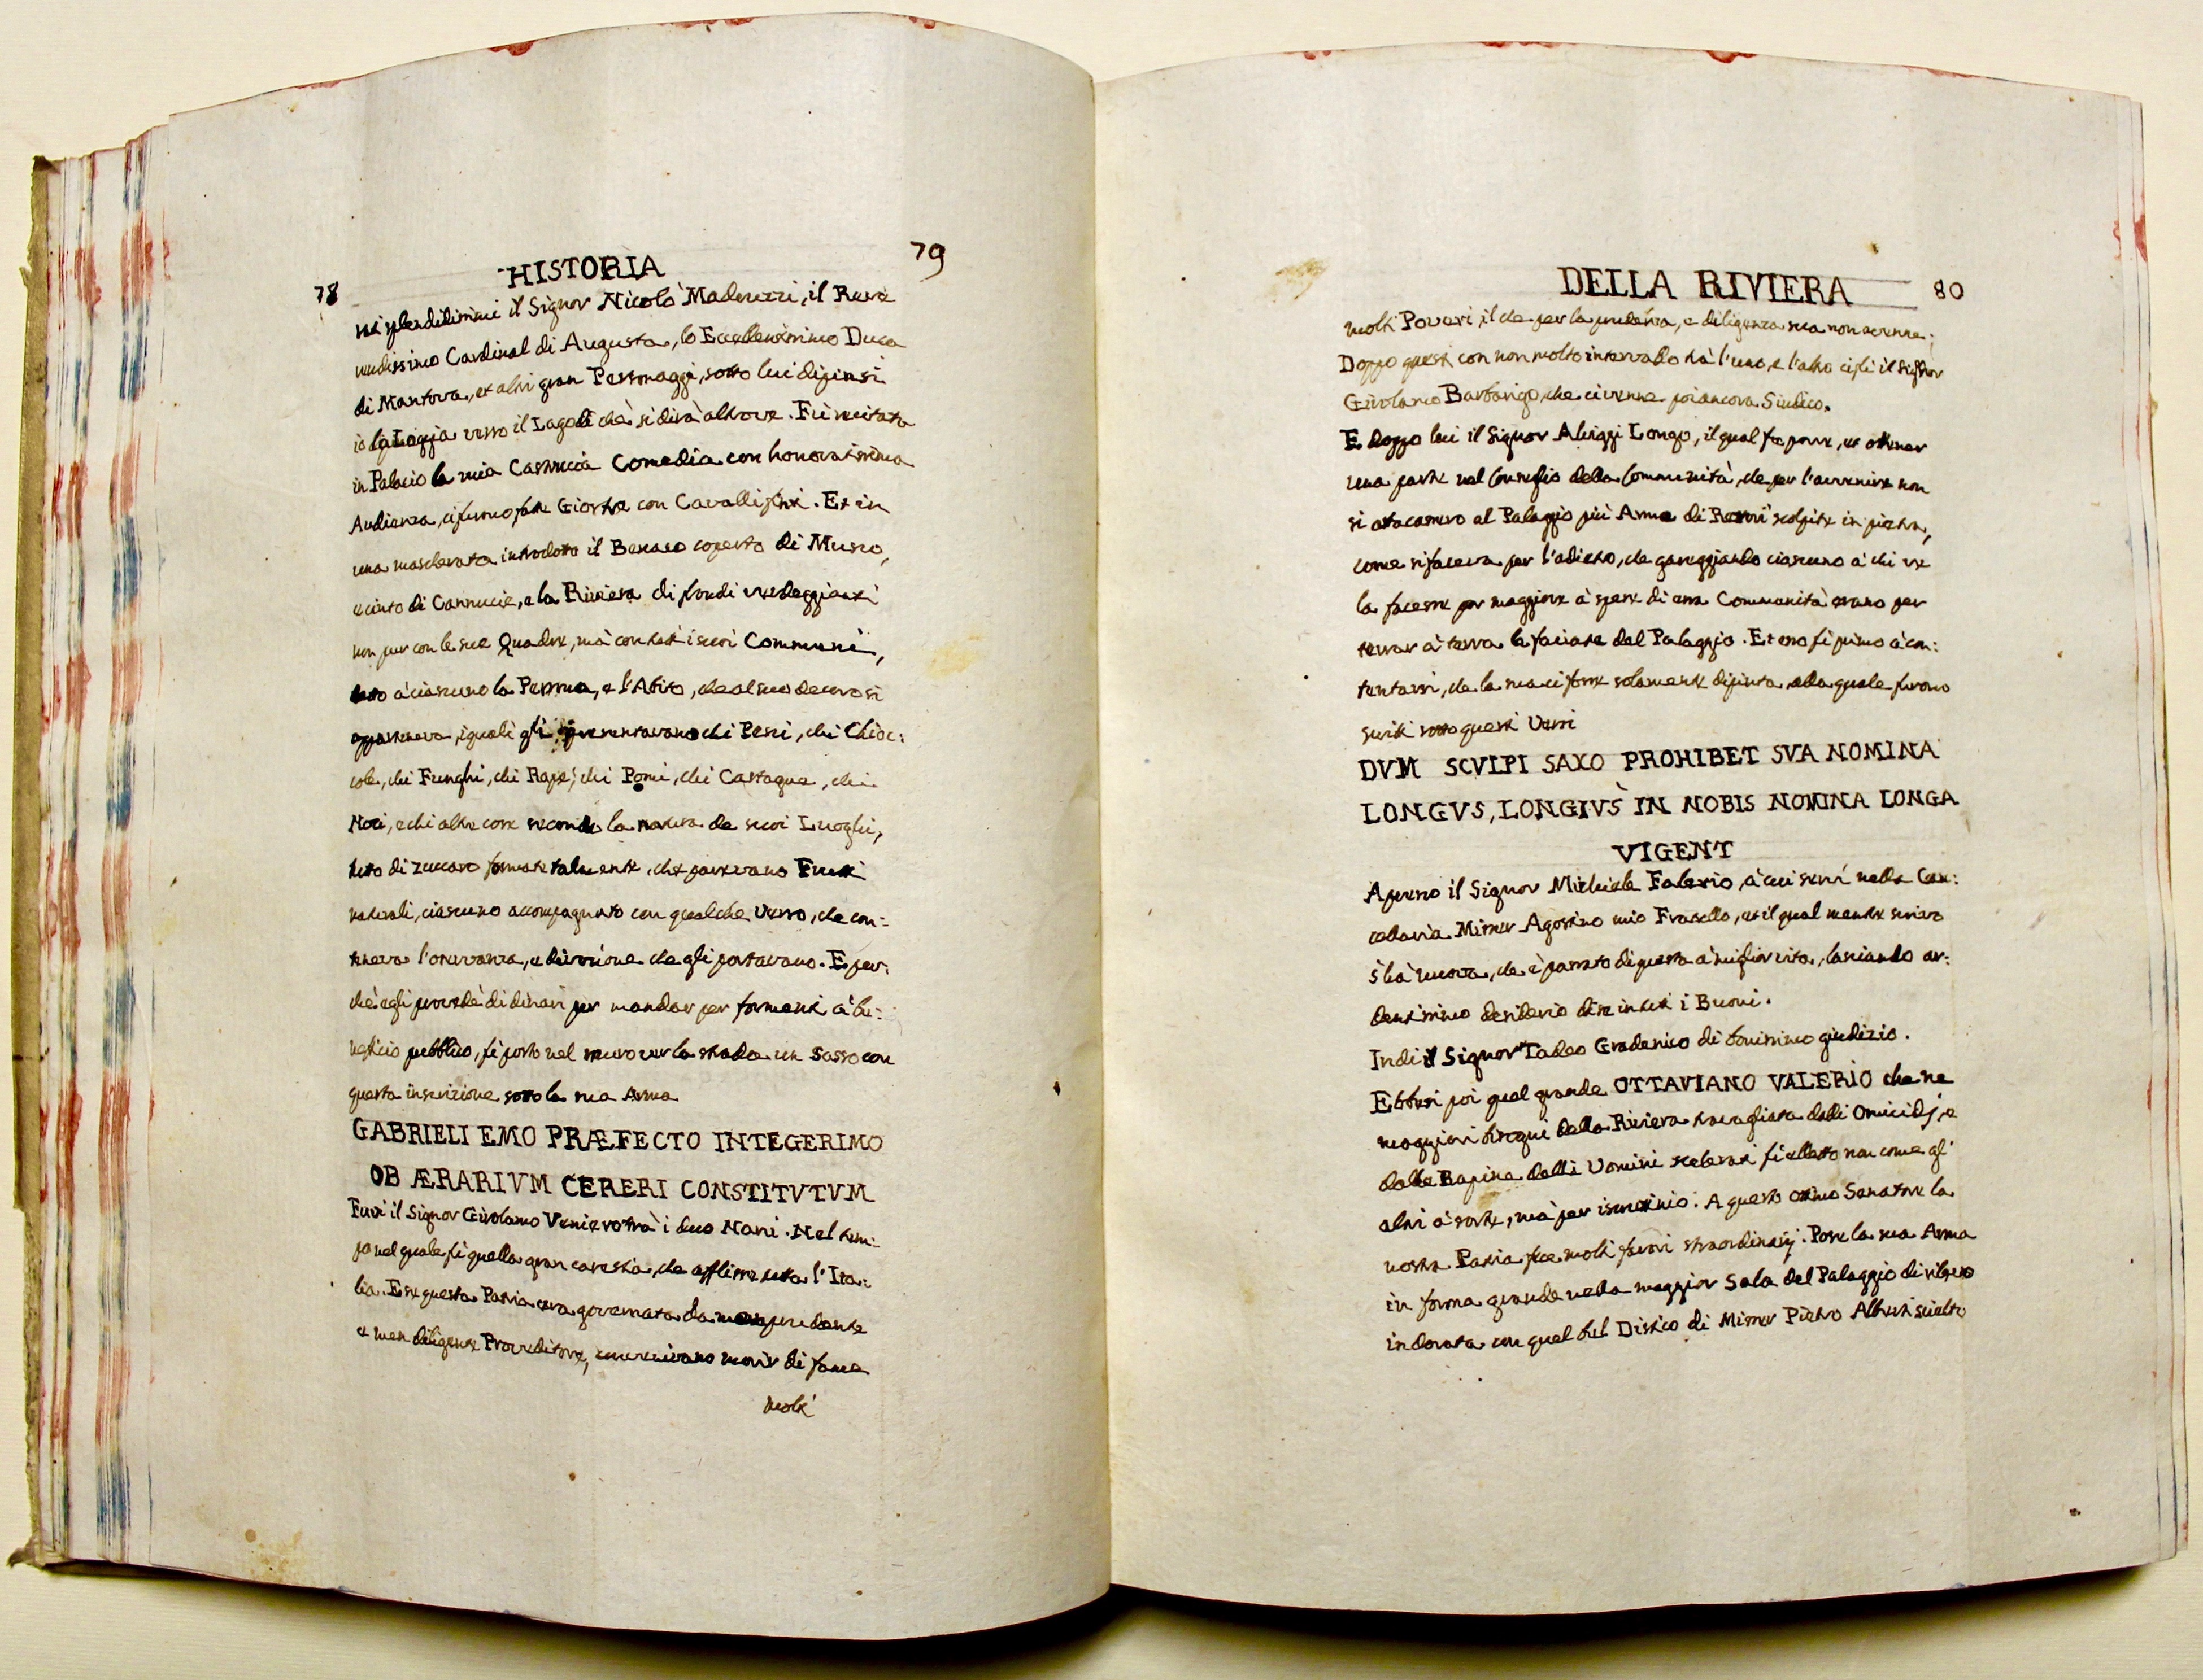 79
HISTORIA
78
splendidissimi il Signor Nicolò Madruzzi, il Reve
rendissimo Cardinal di Augusta, lo Eccellentissimo Duca
di Mantova, et altri gran Personaggi, sotto lui dipinsi
la Loggia verso il Lago di che si dirà altrove. Fù recitata
in Palacio la mia Comedia con honoratissima
Audienza, ci furno fatte Giostre con Cavalli finti. Et in
una mascherata introdotto il Benaco coperto di Musco,
e cinto di Cannuccie, e la Riviera di frondi verdeggianti
non pur con le sue Quadre, mà con tutti i suoi Communi,
dato à ciascuno la Persona, e l'Abito, che al suo decoro si
apparteneva, i quali gli appresentavano chi Pesci, chi Chioc:
cole, chi Funghi, chi Rape, chi Pomi, chi Castagne, chi
Noci, e chi altre cose secondo la natura de suoi Luoghi,
tutto di zuccaro formate talmente, che parevano Frutti
naturali, ciascuno accompagnato con qualche Verso, che con:
teneva l'osservanza, e divozione che gli portavano. E per:
chè egli provedè di dinari per mandar per formenti à be:
neficio pubblico, fù posto nel muro ver la strada un Sasso con
questa inscrizione sotto la sua Arma
GABRIELI EMO PRÆFECTO INTEGERIMO
OB ÆRARIVM CERERI CONSTITVTVM
Fuvi il Signor Girolamo Veniero trà i duo Nani. Nel tem:
po nel quale fù quella gran carestia, che afflisse tutta l'Ita:
lia. E se questa Patria era governata da men prudente
e men diligente Proveditore, convenivano morir di fame
molti
DELLA RIVIERA 80
molti Poveri, il che per la prudenza, e diligenza sua non avenne;
Doppo questi con non molto intervallo trà l'uno, e l'altro ci fù il Signor
Girolamo Barbarigo, che ci venne poi ancora Sindico.
E doppo lui il Signor Aluiggi Longo, il qual fece porre, et ottener
una parte nel Conseglio della Communità, che per l'avvenire non
si atacassero al Palaggio più Arme di Rettori scolpite in pietra,
come si faceva per l'adietro, che gareggiando ciascuno à chi ve
la facesse por maggiore à spese di essa Communità erano per
tirrar à terra le faciate del Palaggio. Et esso fù primo à con:
tentarsi, che la sua ci fosse solamente dipinta, alla quale furono
scritti sotto questi Versi
DVM SCVLPI SAXO PROHIBET SVA NOMINA
LONGVS, LONGIVS IN NOBIS NOMINA LONGA
VIGENT
Apresso il Signor Michiele Falerio, à cui servì nella Can:
cellaria Misser Agostino mio Fratello, et il qual mentre scrivo
s'hà nuova, che è passato di questa à miglior vita, lasciando ar:
dentissimo desiderio di se in tutti i Buoni.
Indi il Signor Tadeo Gradenico di bonissimo giudizio.
Ebbesi poi quel grande OTTAVIANO VALERIO che ne
maggiori bisogni della Riviera travagliata dalli Omicidj, e
dalle Rapine delli Uomini scelerati fù eletto non come gl'
altri à sorte, mà per iscrutinio. A questo ottimo Senatore la
nostra Patria fece molti favori straordinarij. Pose la sua Arma
in forma grande nella maggior Sala del Palaggio di rilievo
indorata con quel bel Distico di Misser Pietro Alberti scielto